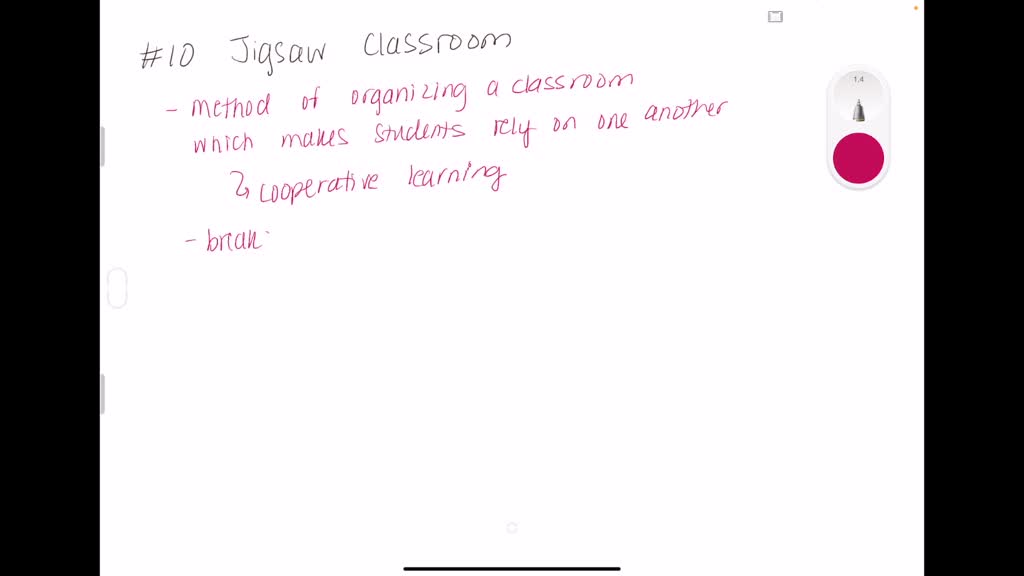 #10 Jigsaw Classroom
- method of organizing a classroom
which makes students rely on one another
↳ cooperative learning
- break
1.4